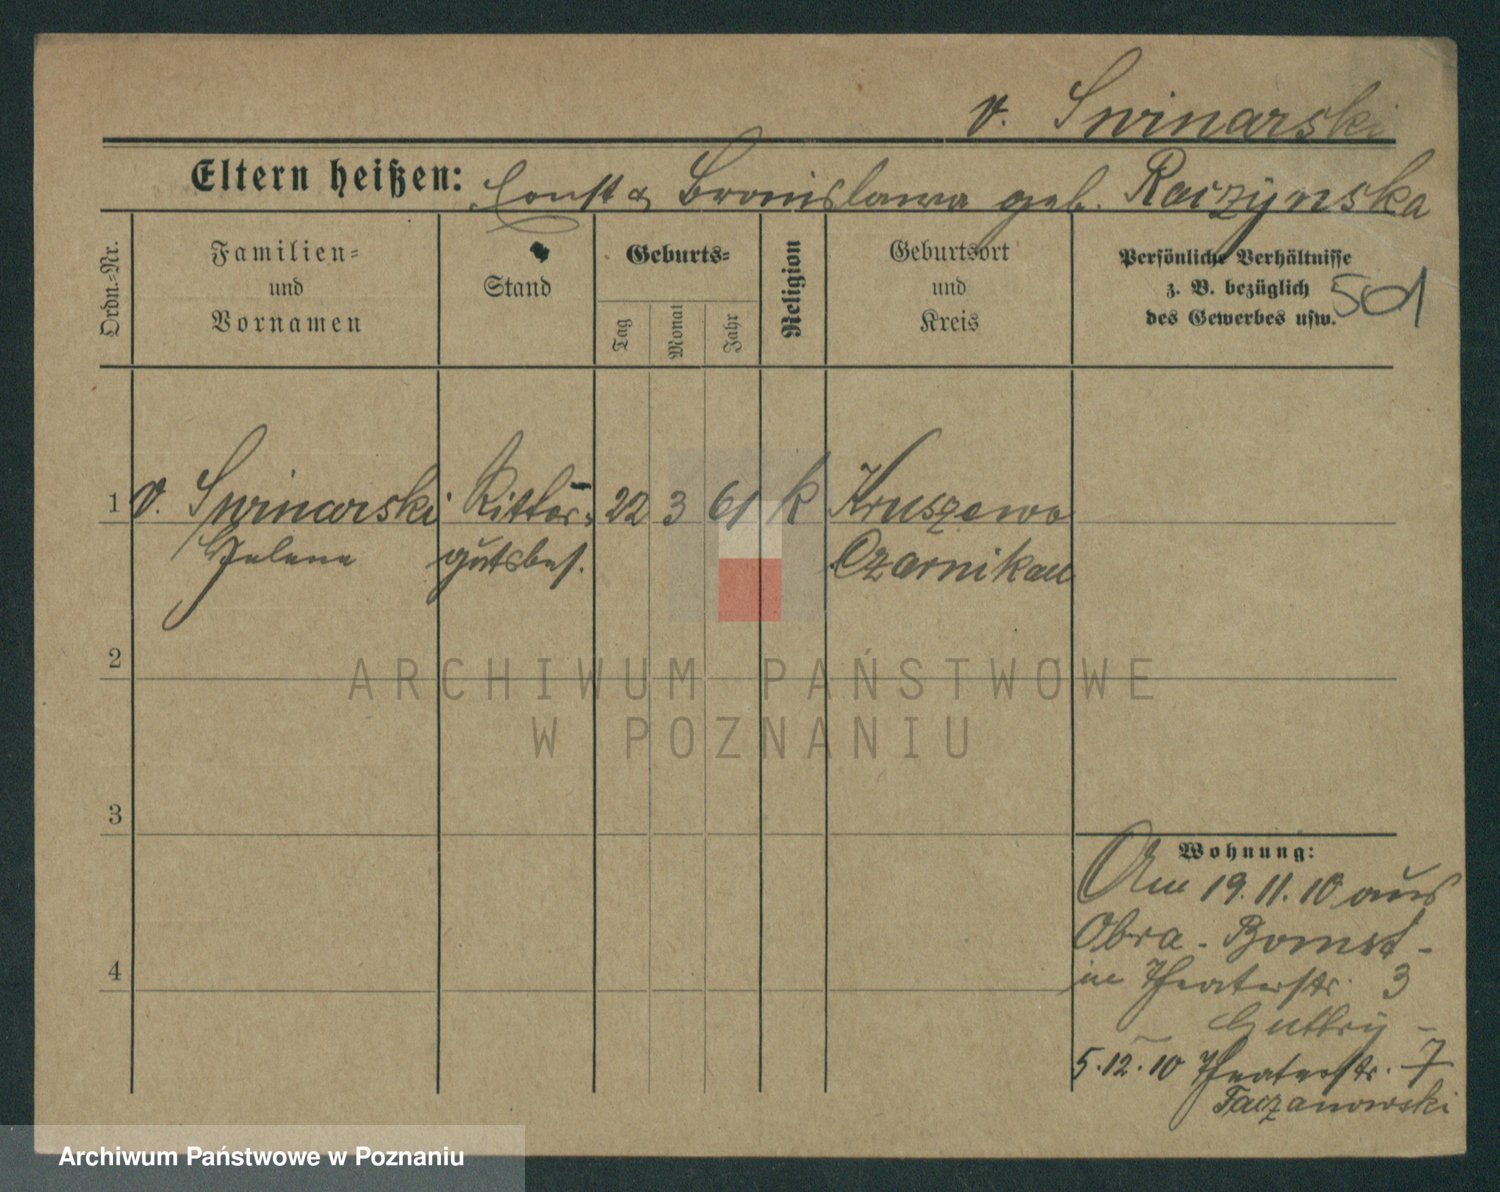 v. Swinarski
Eltern heißen: Const & Bronislawa geb. Raczynska
Ordn.-Nr.
Familien-
und
Vornamen
Stand
Geburts-
Tag
Monat
Jahr
Religion
Geburtsort
und
Kreis
Persönliche Verhältnisse
z. B. bezüglich
des Gewerbes usw.
501
1 v. Swinarski Ritter- 22 3 61 k Kruszewo
Helene gutsbes. Czarnikau
2
3
4
Wohnung:
Am 19.11.10 aus
Obra - Bomst -
in Theaterstr. 3
5.12.10 Theaterstr. 7
Taczanowski
ARCHIWUM PAŃSTWOWE
W POZNANIU
Archiwum Państwowe w Poznaniu